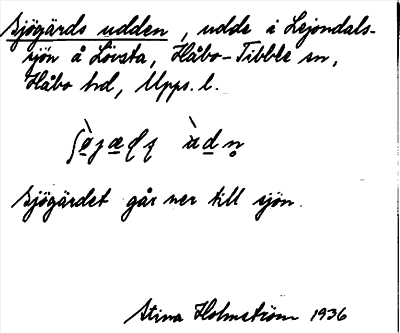 Sjögärds udden, udde i Lejondals-
sjön å Lövsta, Håbo-Tibble sn,
Håbo hd, Upps. l.
Sjögärdet går ner till sjön.
Stina Holmström 1936